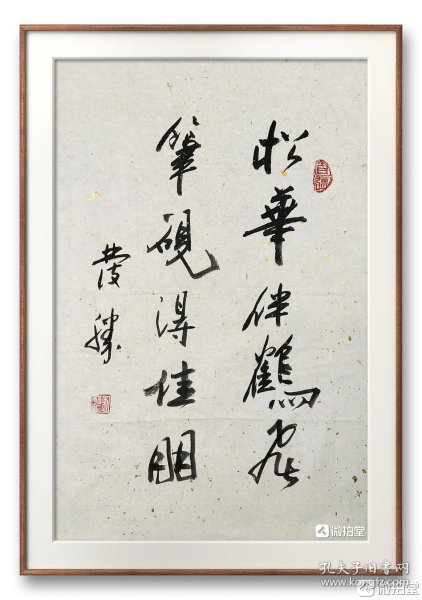 松華伴鶴
筆硯得佳朋
微拍堂
孔夫子旧书网
www.kongfz.com
微拍堂